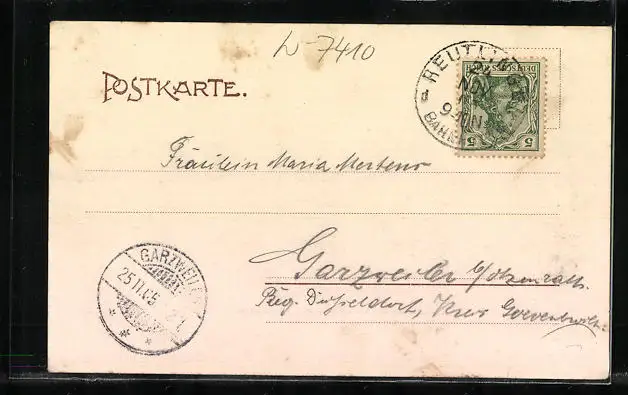 L-7410
POSTKARTE.
REUTLI
NOV
9-10 N.
BAHNH
DEUTSCHES REICH
5 5
Fräulein Maria Mertens
Garzweiler
Bez. Düsseldorf, Kreis Grevenbroich
GARZWEILER
25.11.05